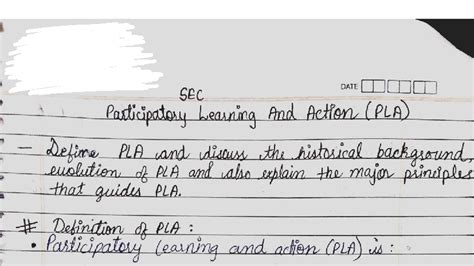 DATE
SEC
Participatory Learning And Action (PLA)
— Define PLA and discuss the historical background,
evolution of PLA and also explain the major principles
that guides PLA.
# Definition of PLA :
• Participatory learning and action (PLA) is :